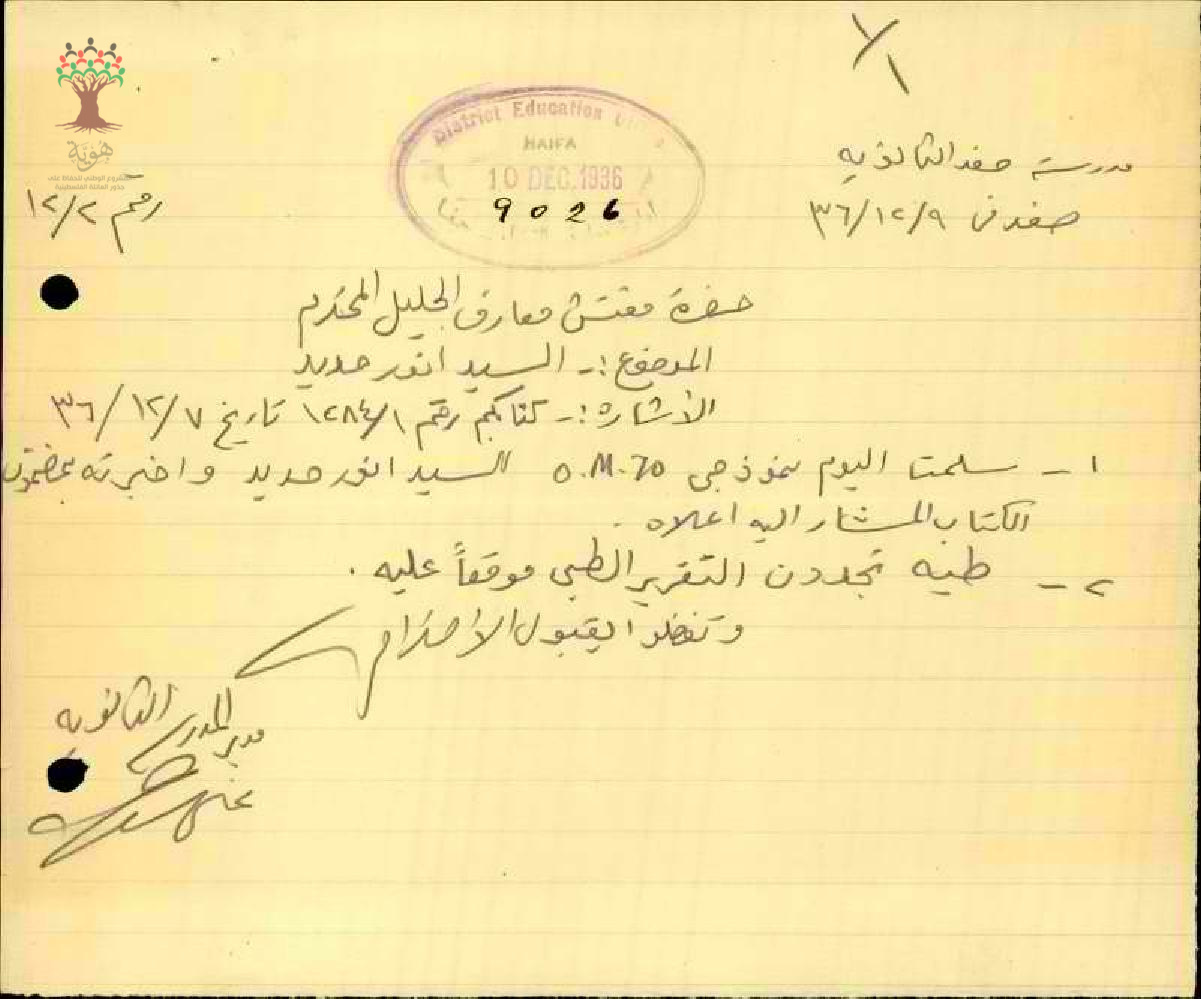 ٧١
مدرسة صفد الثانويه
صفد في ٣٦/١٢/٩
رقم ١٢/٢
District Education
HAIFA
10 DEC. 1936
9026
هوية
المشروع الوطني للحفاظ على
جذور العائلة الفلسطينية
حضرة مفتش معارف الجليل المحترم
الموضوع :ـ السيد انور حديد
الاشاره :ـ كتابكم رقم ١٢٨٤/١ تاريخ ٣٦/١٢/٧
١ ـ سلمت اليوم نموذجي O.M. 70 للسيد انور حديد واخبرته بمضمون
الكتاب المشار اليه اعلاه .
٢ ـ طيه تجدون التقرير الطبي موقعاً عليه .
وتفضلوا بقبول الاحترام
مدير المدرسة الثانويه